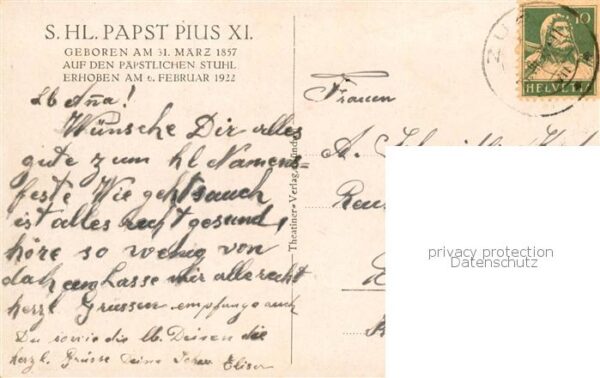 S. HL. PAPST PIUS XI.
GEBOREN AM 31. MÄRZ 1857
AUF DEN PÄPSTLICHEN STUHL
ERHOBEN AM 6. FEBRUAR 1922
Lb Aña!
Wünsche Dir alles
gute zum hl Namens-
feste Wie gehts auch
ist alles recht gesund,
höre so wenig von
daheim Lasse mir alle recht
herzl Grüssen empfange auch
Du sowie die lb. Deinen die
herzl. Grüsse Deine
Theatiner-Verlag, Münch
Frauen
A.
10
HELVETIA
privacy protection
Datenschutz